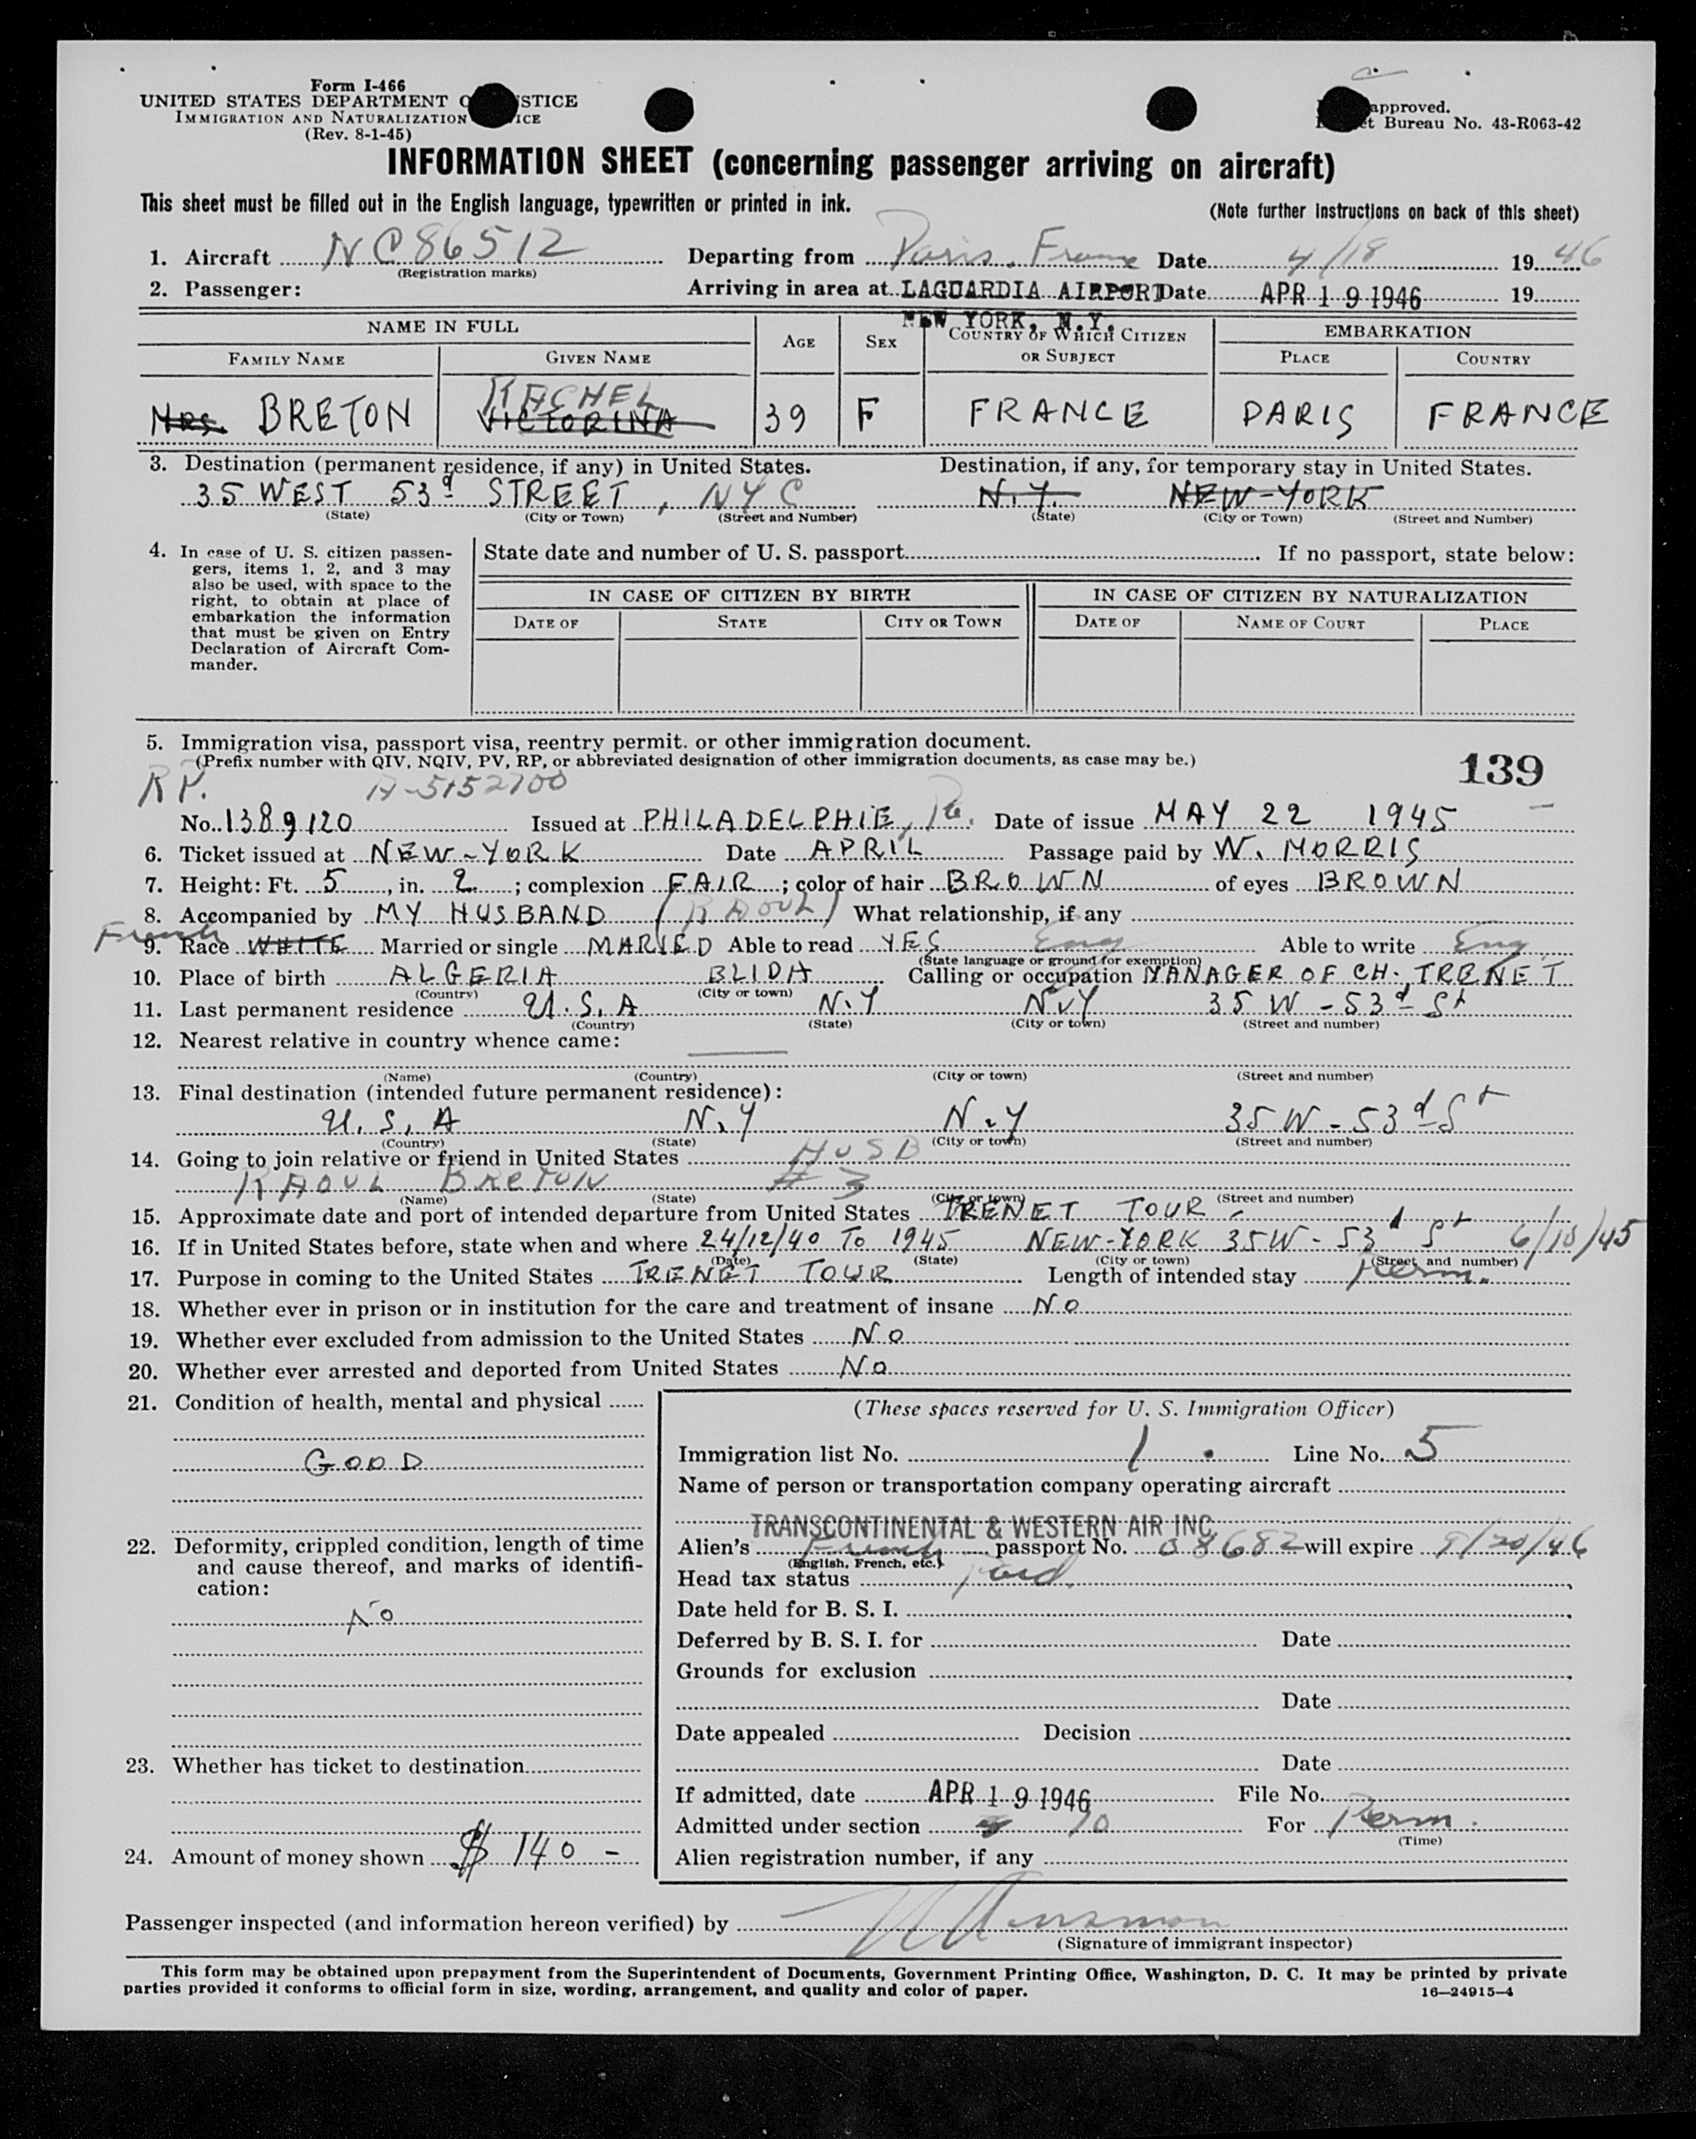 Form I-466
UNITED STATES DEPARTMENT O STICE
IMMIGRATION AND NATURALIZATION ICE
(Rev. 8-1-45)
approved.
t Bureau No. 43-R063-42
INFORMATION SHEET (concerning passenger arriving on aircraft)
This sheet must be filled out in the English language, typewritten or printed in ink.
(Note further instructions on back of this sheet)
1. Aircraft NC86512 Departing from Paris. France Date 4/18 1946
(Registration marks)
2. Passenger: Arriving in area at LAGUARDIA AIRPORT Date APR 19 1946 19
NEW YORK, N.Y.
NAME IN FULL AGE SEX COUNTRY OF WHICH CITIZEN OR SUBJECT EMBARKATION
FAMILY NAME GIVEN NAME PLACE COUNTRY
RACHEL
Mrs. BRETON VICTORINA 39 F FRANCE PARIS FRANCE
3. Destination (permanent residence, if any) in United States. Destination, if any, for temporary stay in United States.
35 WEST 53d STREET, NYC N.Y. NEW-YORK
(State) (City or Town) (Street and Number) (State) (City or Town) (Street and Number)
4. In case of U. S. citizen passen-
gers, items 1, 2, and 3 may
also be used, with space to the
right, to obtain at place of
embarkation the information
that must be given on Entry
Declaration of Aircraft Com-
mander.
State date and number of U. S. passport If no passport, state below:
IN CASE OF CITIZEN BY BIRTH IN CASE OF CITIZEN BY NATURALIZATION
DATE OF STATE CITY OR TOWN DATE OF NAME OF COURT PLACE
5. Immigration visa, passport visa, reentry permit. or other immigration document.
(Prefix number with QIV, NQIV, PV, RP, or abbreviated designation of other immigration documents, as case may be.)
139
RP. A-5152700
No. 1389120 Issued at PHILADELPHIE, Pa. Date of issue MAY 22 1945
6. Ticket issued at NEW-YORK Date APRIL Passage paid by W. MORRIS
7. Height: Ft. 5, in. 2; complexion FAIR; color of hair BROWN of eyes BROWN
8. Accompanied by MY HUSBAND (RAOUL) What relationship, if any
French
9. Race WHITE Married or single MARIED Able to read YES Eng Able to write Eng
(State language or ground for exemption)
10. Place of birth ALGERIA BLIDA Calling or occupation MANAGER OF CH. TRENET
(Country) (City or town)
11. Last permanent residence U.S.A N.Y N.Y 35 W-53d St
(Country) (State) (City or town) (Street and number)
12. Nearest relative in country whence came:
(Name) (Country) (City or town) (Street and number)
13. Final destination (intended future permanent residence):
U.S.A N.Y N.Y 35 W-53d St
(Country) (State) (City or town) (Street and number)
14. Going to join relative or friend in United States HUSB
RAOUL BRETON # 3
(Name) (State) (City or town) (Street and number)
15. Approximate date and port of intended departure from United States TRENET TOUR
16. If in United States before, state when and where 24/12/40 To 1945 NEW-YORK 35W-53d St 6/10/45
(Date) (State) (City or town) (Street and number)
17. Purpose in coming to the United States TRENET TOUR Length of intended stay Perm.
18. Whether ever in prison or in institution for the care and treatment of insane NO
19. Whether ever excluded from admission to the United States NO
20. Whether ever arrested and deported from United States NO
21. Condition of health, mental and physical
GOOD
22. Deformity, crippled condition, length of time
and cause thereof, and marks of identifi-
cation:
NO
23. Whether has ticket to destination
24. Amount of money shown $ 140 -
(These spaces reserved for U. S. Immigration Officer)
Immigration list No. 1 Line No. 5
Name of person or transportation company operating aircraft
TRANSCONTINENTAL & WESTERN AIR INC.
Alien's French passport No. 08682 will expire 9/20/46
(English, French, etc.)
Head tax status Paid.
Date held for B. S. I.
Deferred by B. S. I. for Date
Grounds for exclusion
Date
Date appealed Decision
Date
If admitted, date APR 19 1946 File No.
Admitted under section 10 For Perm.
(Time)
Alien registration number, if any
Passenger inspected (and information hereon verified) by
(Signature of immigrant inspector)
This form may be obtained upon prepayment from the Superintendent of Documents, Government Printing Office, Washington, D. C. It may be printed by private
parties provided it conforms to official form in size, wording, arrangement, and quality and color of paper.
16—24915-4